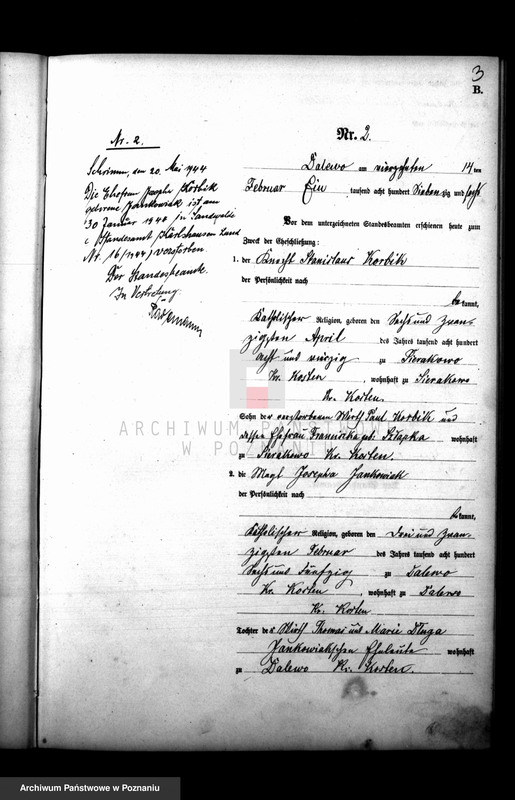 3
B.
Nr. 2.
Nr. 2.
Schrimm, den 20. Mai 1944
Die Ehefrau Josepha Korbik
geborene Jankowiak ist am
30 Januar 1940 in
Standesamt Karlshausen Land
Nr. 16/1944) verstorben.
Der Standesbeamte.
In Vertretung
Dalewo am vierzehnten 14 ten
Februar Ein tausend acht hundert Siebenzig und sechs
Vor dem unterzeichneten Standesbeamten erschienen heute zum
Zweck der Eheschließung:
1. der Knecht Stanislaus Korbik
der Persönlichkeit nach
bekannt,
katholischer Religion, geboren den Sechs und zwan-
zigsten April des Jahres tausend acht hundert
acht und vierzig zu Sierakowo
Kr. Kosten, wohnhaft zu Sierakowo
Kr. Kosten.
Sohn der verstorbenen Wirth Paul Korbik und
dessen Ehefrau Franciska geb. Szlapka wohnhaft
zu Sierakowo Kr. Kosten.
2. die Magd Josepha Jankowiak
der Persönlichkeit nach
bekannt,
katholischer Religion, geboren den Drei und zwan-
zigsten Februar des Jahres tausend acht hundert
Sechs und Fünfzig zu Dalewo
Kr. Kosten, wohnhaft zu Dalewo
Kr. Kosten
Tochter der Wirth Thomas und Marie Dluga
Jankowiakschen Eheleute wohnhaft
zu Dalewo Kr. Kosten.
ARCHIWUM PAŃSTWOWE
W POZNANIU
Archiwum Państwowe w Poznaniu